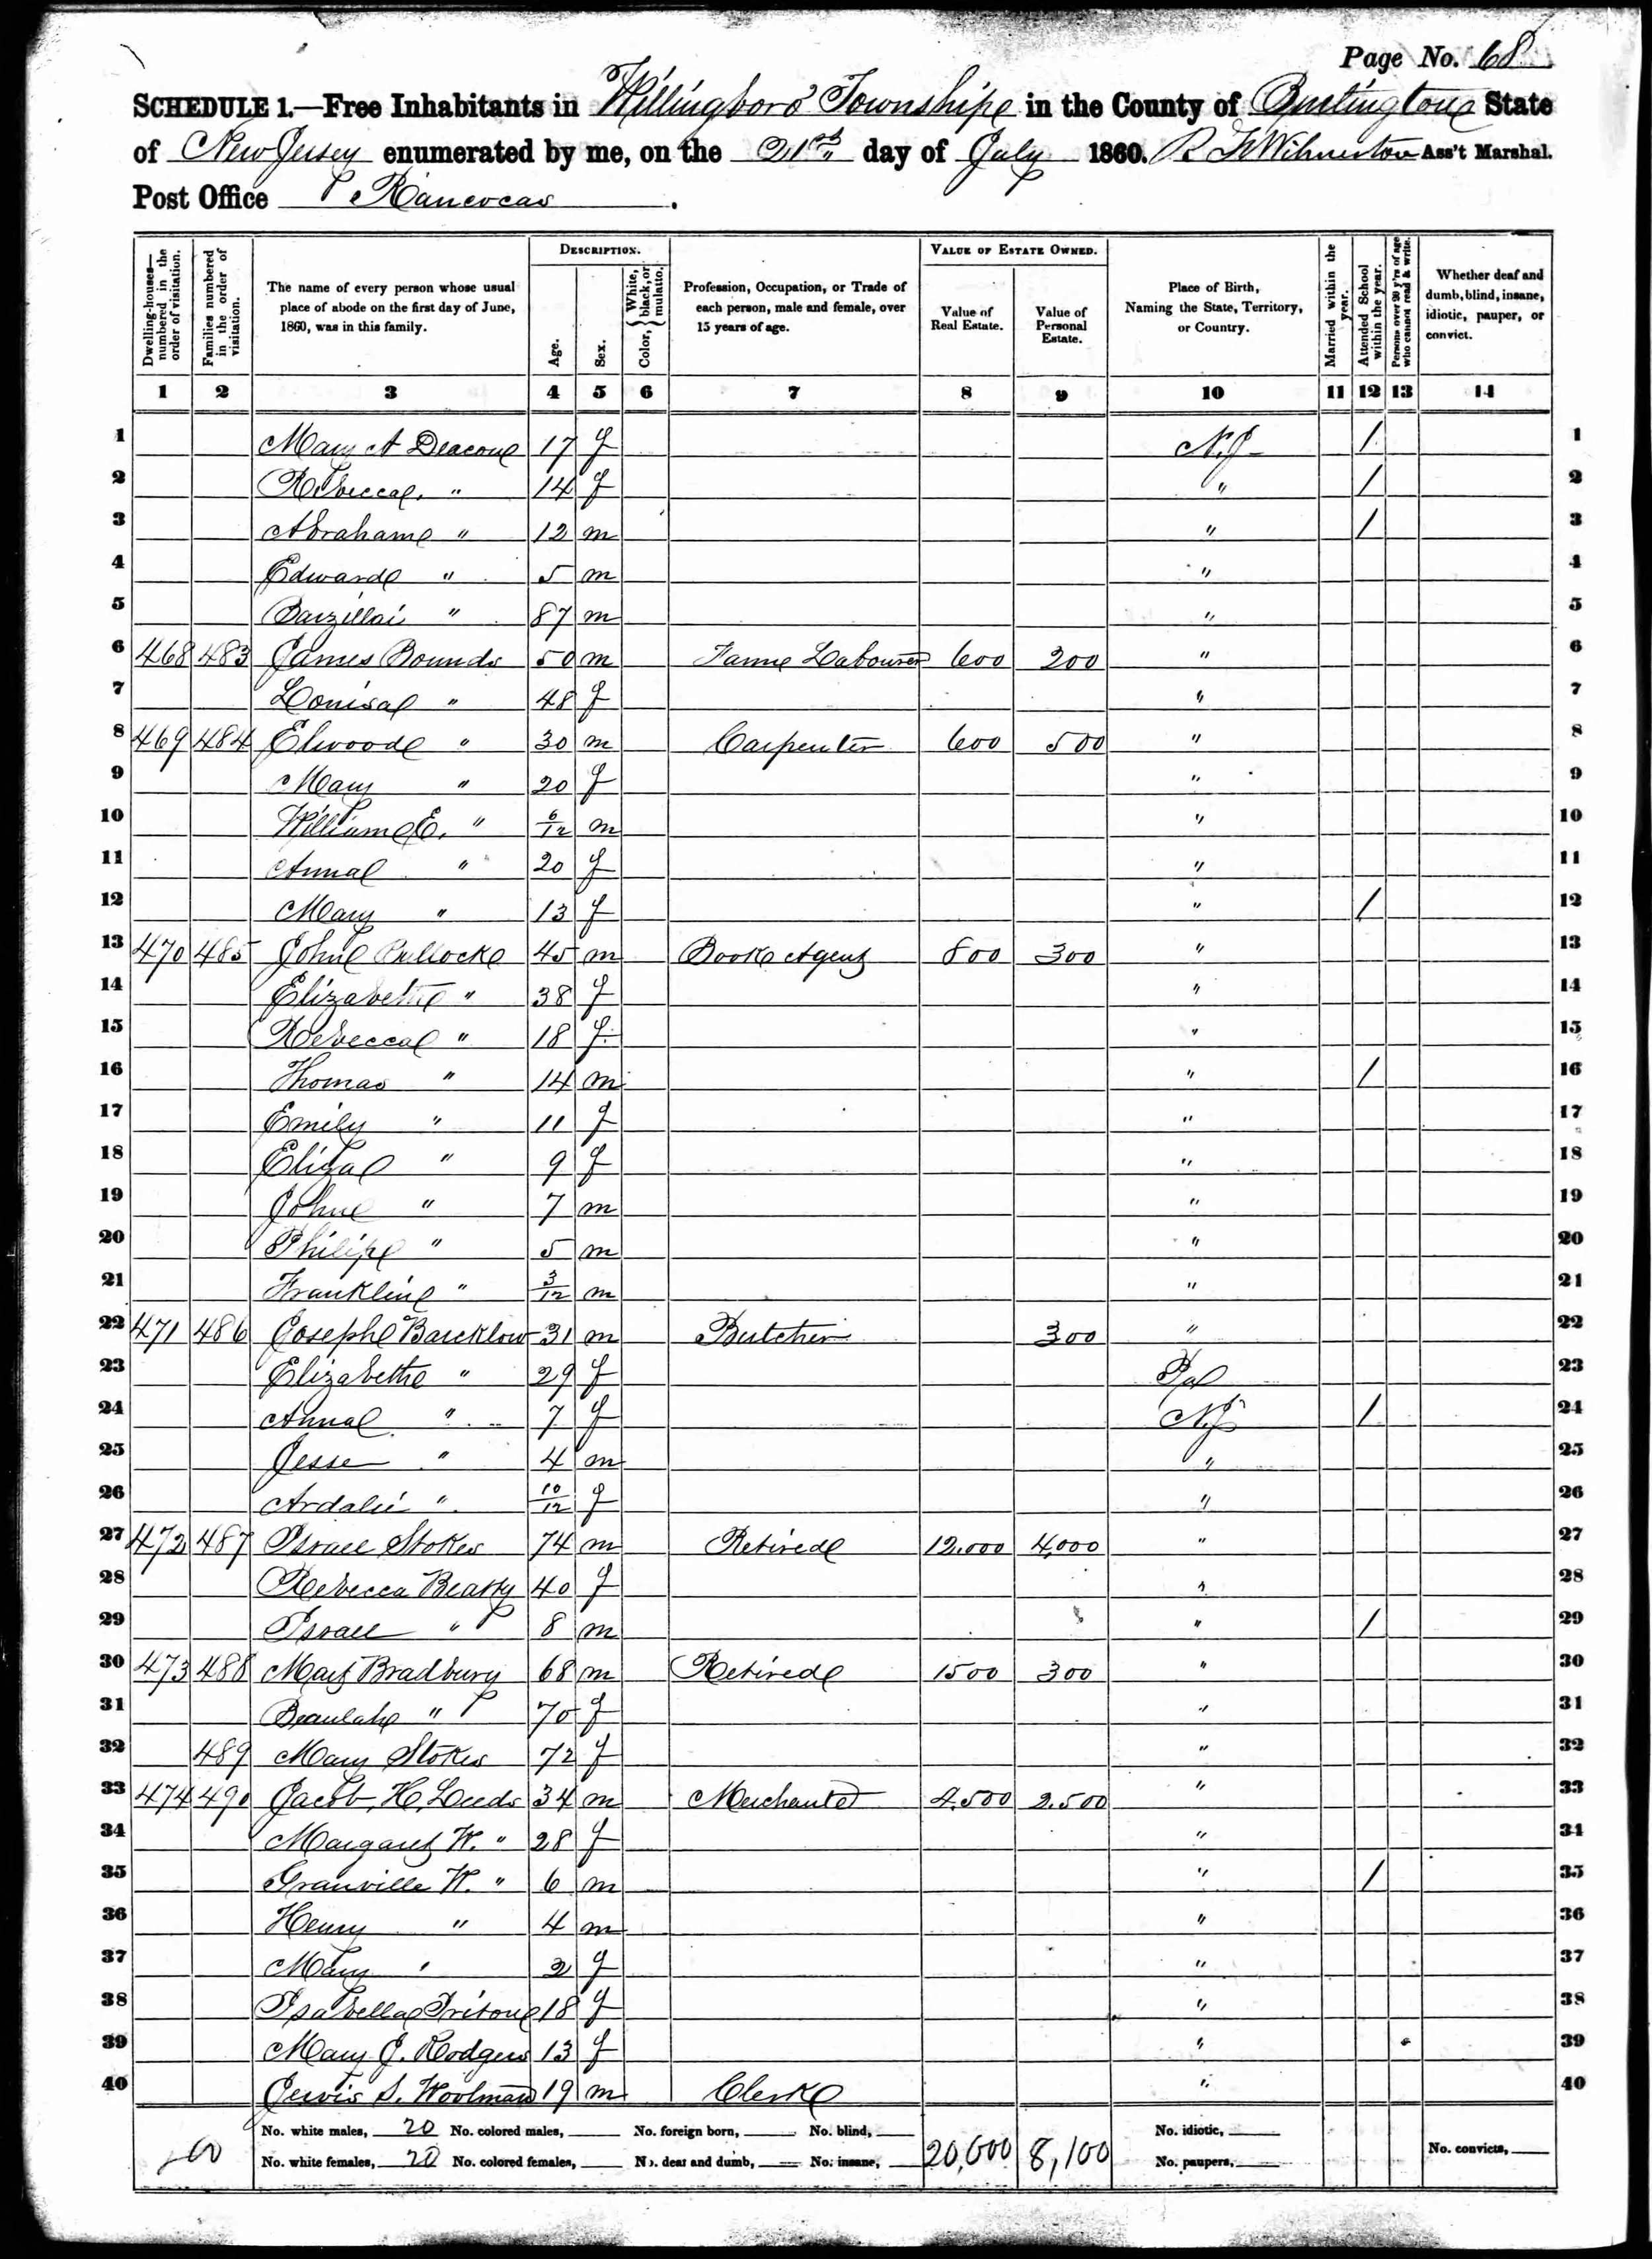 Page No. 68
SCHEDULE 1.—Free Inhabitants in Willingboro Township in the County of Burlington State
of New Jersey enumerated by me, on the 21st day of July 1860. Ass't Marshal.
Post Office Rancocas.
Dwelling-houses—numbered in the order of visitation. Families numbered in the order of visitation. The name of every person whose usual place of abode on the first day of June, 1860, was in this family. DESCRIPTION. Age. Sex. Color, {White, black, or mulatto. Profession, Occupation, or Trade of each person, male and female, over 15 years of age. VALUE OF ESTATE OWNED. Value of Real Estate. Value of Personal Estate. Place of Birth, Naming the State, Territory, or Country. Married within the year. Attended School within the year. Persons over 20 y'rs of age who cannot read & write. Whether deaf and dumb, blind, insane, idiotic, pauper, or convict.
1 2 3 4 5 6 7 8 9 10 11 12 13 14
1 Mary A Deacon 17 f N.J. / 1
2 Rebecca " 14 f " / 2
3 Abraham " 12 m " / 3
4 Edward " 5 m " 4
5 Barzillai " 87 m " 5
6 468 483 James Bounds 50 m Farm Labourer 600 200 " 6
7 Louisa " 48 f " 7
8 469 484 Elwood " 30 m Carpenter 600 500 " 8
9 Mary " 20 f " 9
10 William E. " 6/12 m " 10
11 Anna " 20 f " 11
12 Mary " 13 f " / 12
13 470 485 John Bullock 45 m Book Agent 800 300 " 13
14 Elizabeth " 38 f " 14
15 Rebecca " 18 f " 15
16 Thomas " 14 m " / 16
17 Emily " 11 f " 17
18 Eliza " 9 f " 18
19 John " 7 m " 19
20 Philip " 5 m " 20
21 Franklin " 3/12 m " 21
22 471 486 Joseph Barcklow 31 m Butcher 300 " 22
23 Elizabeth " 29 f Pa 23
24 Anna " 7 f N.J. / 24
25 Jesse " 4 m " 25
26 Ardalie " 10/12 f " 26
27 472 487 Israel Stokes 74 m Retired 12.000 4,000 " 27
28 Rebecca Beatty 40 f " 28
29 Israel " 8 m " / 29
30 473 488 Mart Bradbury 68 m Retired 1500 300 " 30
31 Beaulah " 70 f " 31
32 489 Mary Stokes 72 f " 32
33 474 490 Jacob H. Leeds 34 m Merchant 4.500 2.500 " 33
34 Margaret W. " 28 f " 34
35 Granville W. " 6 m " / 35
36 Henry " 4 m " 36
37 Mary " 2 f " 37
38 Isabella 18 f " 38
39 Mary J. Rodgers 13 f " 39
40 S. Woolman 19 m Clerk " 40
No. white males, 20 No. colored males, No. foreign born, No. blind, 20,000 8,100 No. idiotic,
40 No. white females, 20 No. colored females, No. deaf and dumb, No. insane, No. paupers, No. convicts,